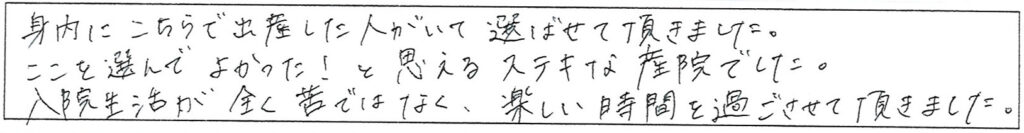 身内にこちらで出産した人がいて選ばせて頂きました。
ここを選んでよかった！と思えるステキな産院でした。
入院生活が全く苦ではなく、楽しい時間を過ごさせて頂きました。